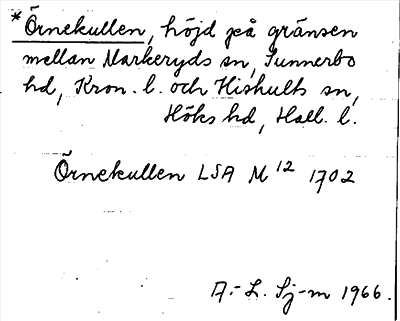 *Örnekullen, höjd på gränsen
mellan Markeryds sn, Sunnerbo
hd, Kron. l. och Hishults sn,
Höks hd, Hall. l.
Örnekullen LSA M 12 1702
A.-L. Sj-m 1966.